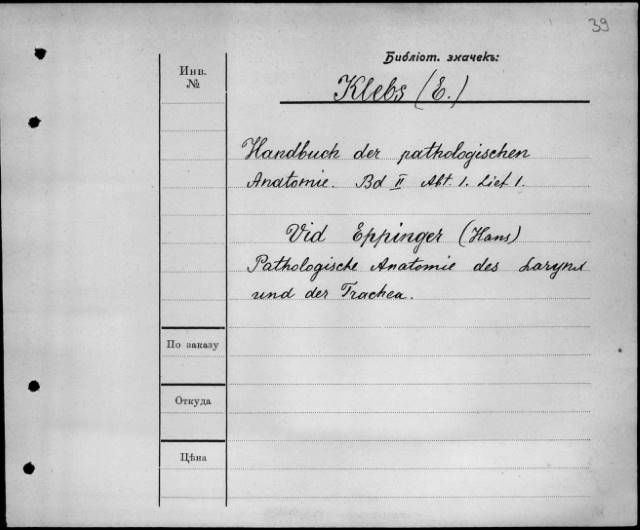 39
Библіот. значекъ:
Инв.
№
Klebs (E.)
Handbuch der pathologischen
Anatomie. Bd II Abt. 1. Lief 1.
Vid Eppinger (Hans)
Pathologische Anatomie des Larynx
und der Trachea.
По заказу
Откуда
Цѣна